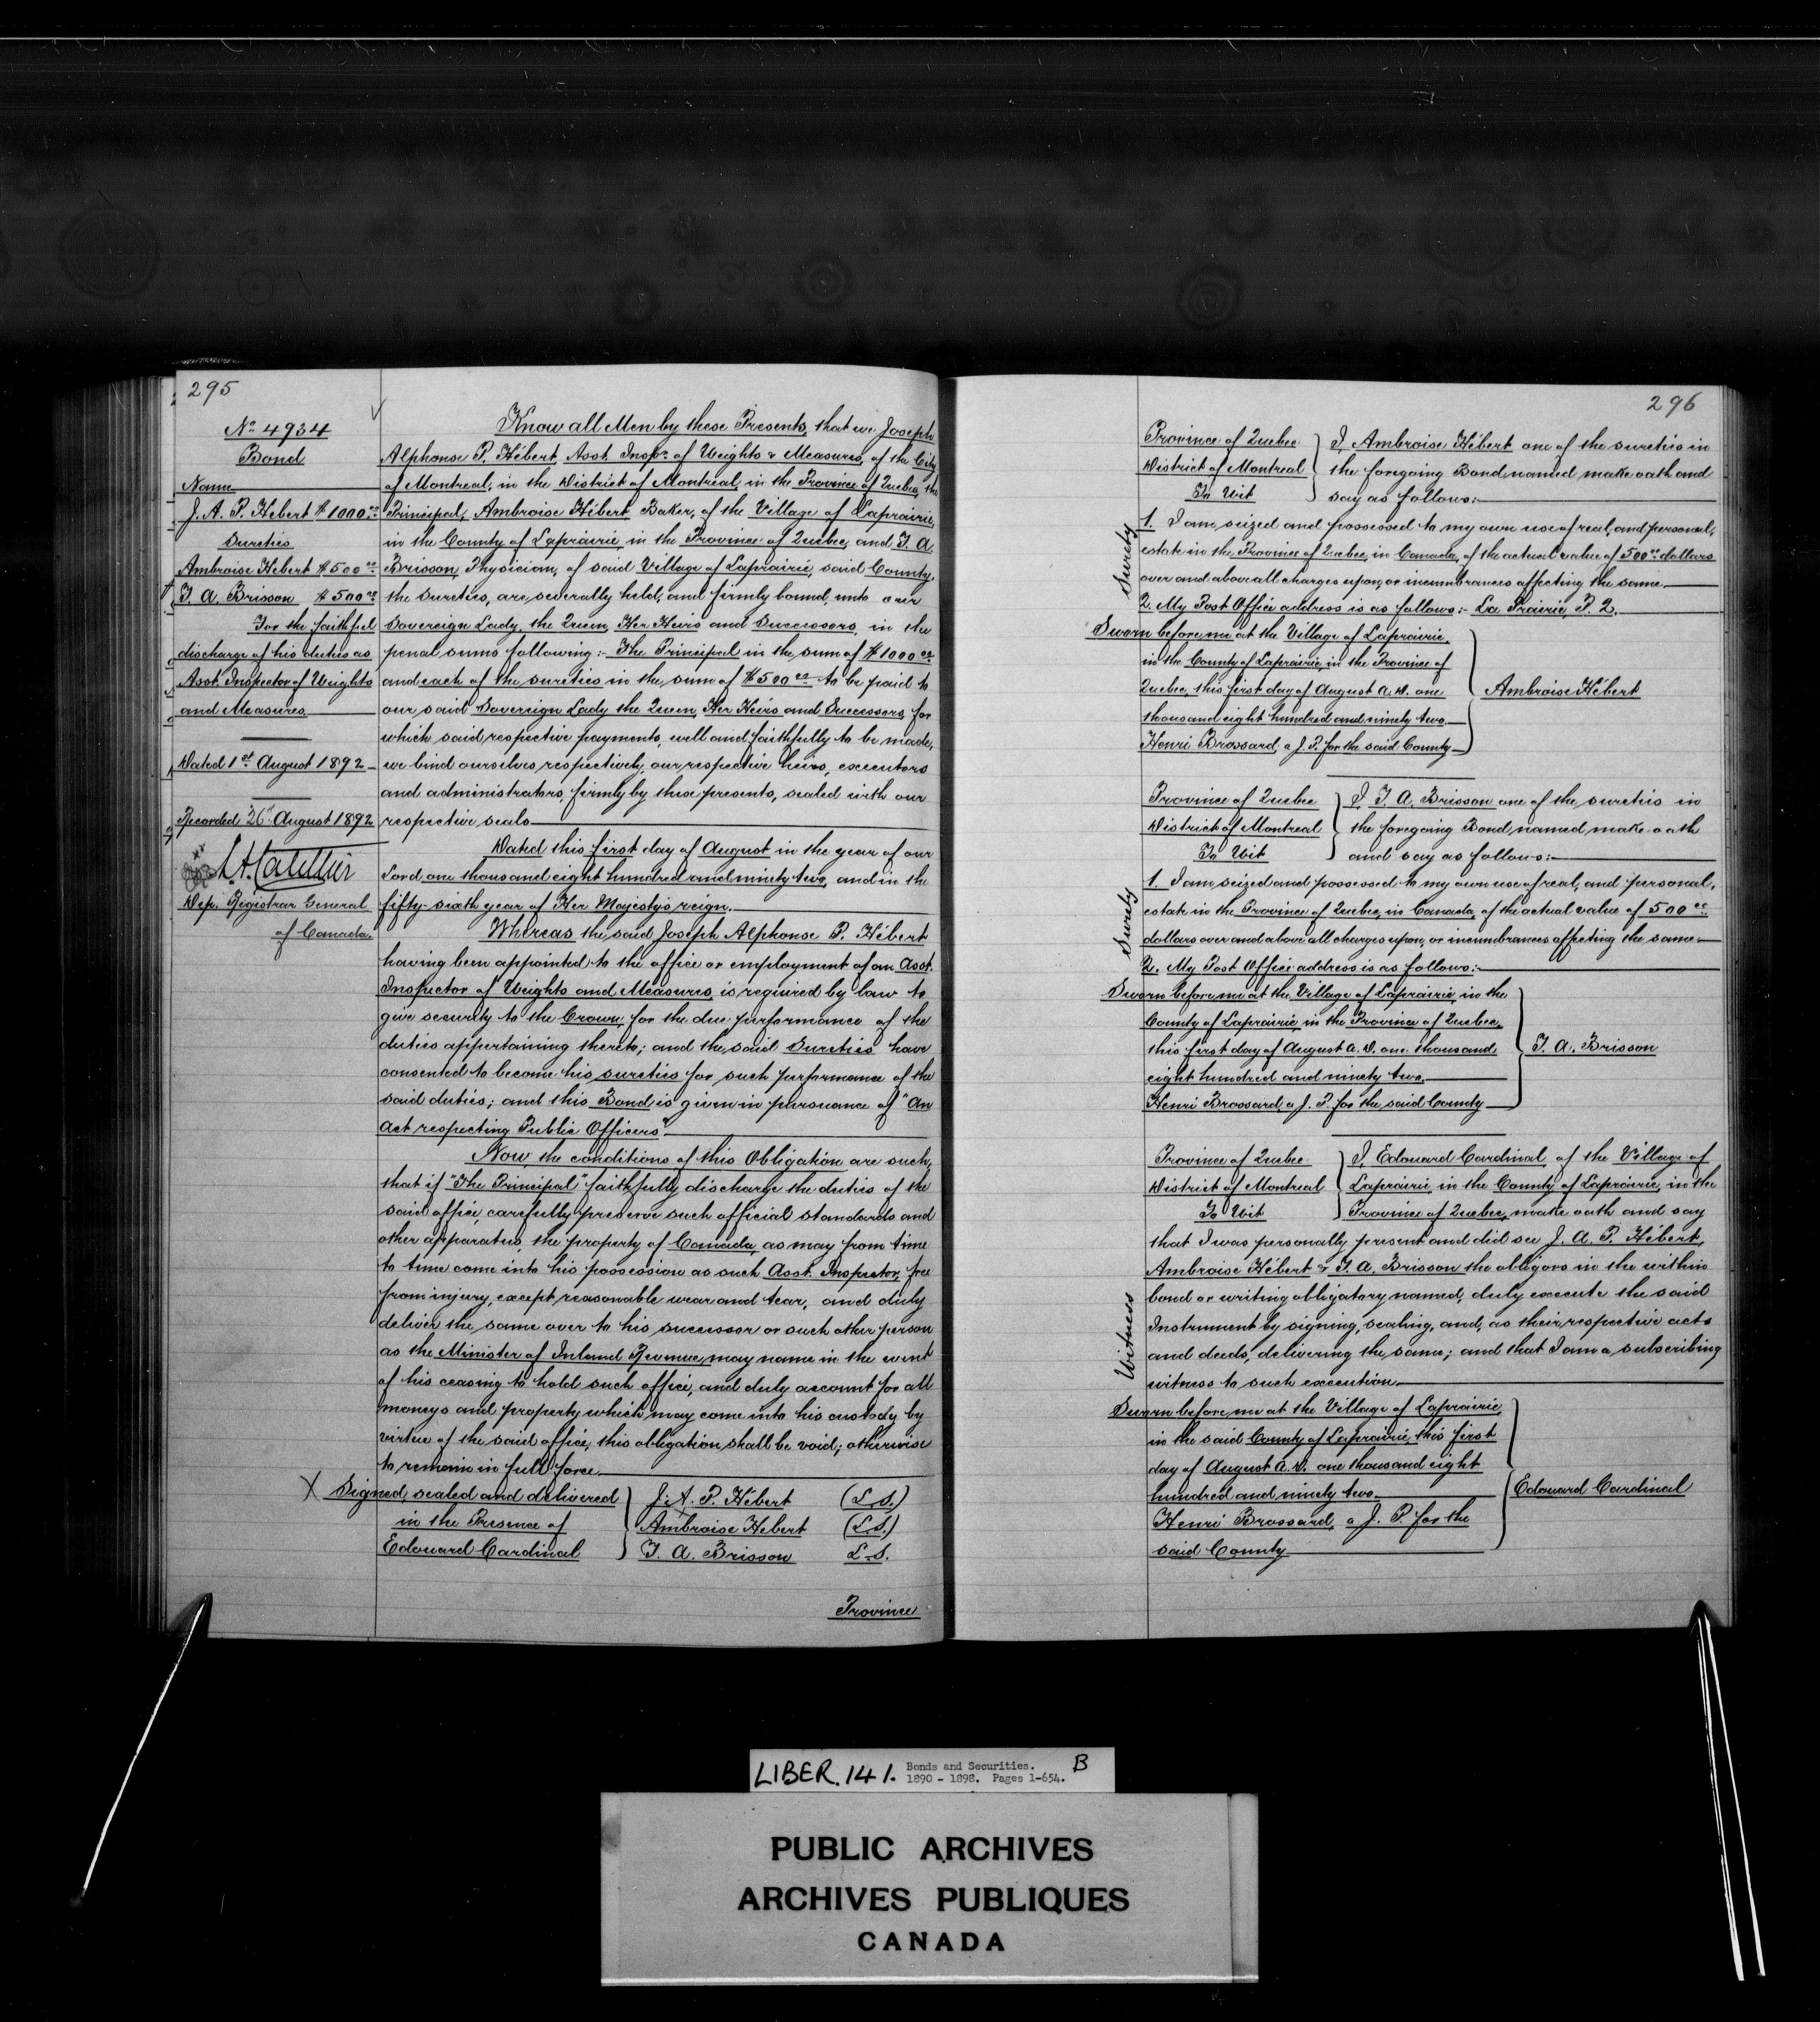 295
No 4934
Bond
Name
J. A. P. Hebert $1000.00
Sureties
Ambroise Hebert $500 00
T. A. Brisson $500 00
For the faithful
discharge of his duties as
Asst. Inspector of Weights
and Measures.
Dated 1st August 1892
Recorded 26th August 1892
Dep. Registrar General
of Canada.
Know all Men by these Presents, that we Joseph
Alphonse P. Hébert, Asst. Inspr. of Weights & Measures, of the City
of Montreal, in the District of Montreal, in the Province of Quebec, the
Principal, Ambroise Hébert Baker, of the Village of Laprairie,
in the County of Laprairie, in the Province of Quebec, and T. A.
Brisson, Physician, of said Village of Laprairie, said County,
the Sureties, are, severally held, and firmly bound, unto our
Sovereign Lady, the Queen, Her Heirs and Successors, in the
penal sums following:- The Principal in the sum of $1000 00
and each of the sureties in the sum of $500 00 to be paid to
our said Sovereign Lady the Queen, Her Heirs and Successors, for
which said respective payments, well and faithfully to be made,
we bind ourselves respectively, our respective heirs, executors
and administrators, firmly by these presents, sealed with our
respective seals
Dated this first day of August in the year of our
Lord one thousand eight hundred and ninety two, and in the
fifty-sixth year of Her Majesty's reign.
Whereas the said Joseph Alphonse P. Hébert
having been appointed to the office or employment of an Asst.
Inspector of Weights and Measures, is required by law to
give security to the Crown, for the due performance of the
duties appertaining thereto; and the said Sureties have
consented to become his sureties for such performance of the
said duties; and this Bond is given in pursuance of "An
Act respecting Public Officers"
Now, the conditions of this Obligation are such,
that if "The Principal" faithfully discharge the duties of the
said office, carefully preserve such official standards and
other apparatus, the property of Canada, as may from time
to time come into his possession as such Asst. Inspector, free
from injury, except reasonable wear and tear, and duly
deliver the same over to his successor or such other person
as the Minister of Inland Revenue, may name in the event
of his ceasing to hold such office, and duly account for all
moneys and property which may come into his custody by
virtue of the said office, this obligation shall be void; otherwise
to remain in full force.
X Signed, sealed and delivered
in the Presence of
Edouard Cardinal
J. A. P. Hébert (L S.)
Ambroise Hebert (L S.)
T. A. Brisson L. S.
Province
296
Province of Quebec
District of Montreal
To Wit
I, Ambroise Hébert one of the sureties in
the foregoing Bond named make oath and
say as follows:-
Surety
1. I am seized and possessed to my own use of real, and personal,
estate in the Province of Quebec, in Canada, of the actual value of 500 00 dollars
over and above all charges upon, or incumbrances affecting the same.
2. My Post Office address is as follows:- La Prairie, P. 2.
Sworn before me at the Village of Laprairie,
in the County of Laprairie, in the Province of
Quebec, this first day of August A. D. one
thousand eight hundred and ninety two.
Henri Brossard, a J. P. for the said County
Ambroise Hébert
Province of Quebec
District of Montreal
To Wit
I, T. A. Brisson one of the sureties in
the foregoing Bond named make oath
and say as follows:-
Surety
1. I am seized and possessed to my own use of real, and personal,
estate in the Province of Quebec, in Canada, of the actual value of 500 00
dollars over and above all charges upon, or incumbrances affecting the same
2. My Post Office address is as follows:-
Sworn before me at the Village of Laprairie, in the
County of Laprairie, in the Province of Quebec,
this first day of August A. D. one thousand
eight hundred and ninety two.
Henri Brossard, a J. P. for the said County
T. A. Brisson
Province of Quebec
District of Montreal
To Wit
I, Edouard Cardinal, of the Village of
Laprairie, in the County of Laprairie, in the
Province of Quebec, make oath and say
Witness
that I was personally present and did see J. A. P. Hébert,
Ambroise Hébert & T. A. Brisson the obligors in the within
bond or writing obligatory named, duly execute the said
Instrument by signing, sealing, and, as their respective acts
and deeds, delivering the same; and that I am a subscribing
witness to such execution
Sworn before me at the Village of Laprairie,
in the said County of Laprairie, this first
day of August A. D. one thousand eight
hundred and ninety two.
Henri Brossard, a J. P. for the
said County
Edouard Cardinal
LIBER. 141. Bonds and Securities. B
1890 - 1898. Pages 1-654.
PUBLIC ARCHIVES
ARCHIVES PUBLIQUES
CANADA